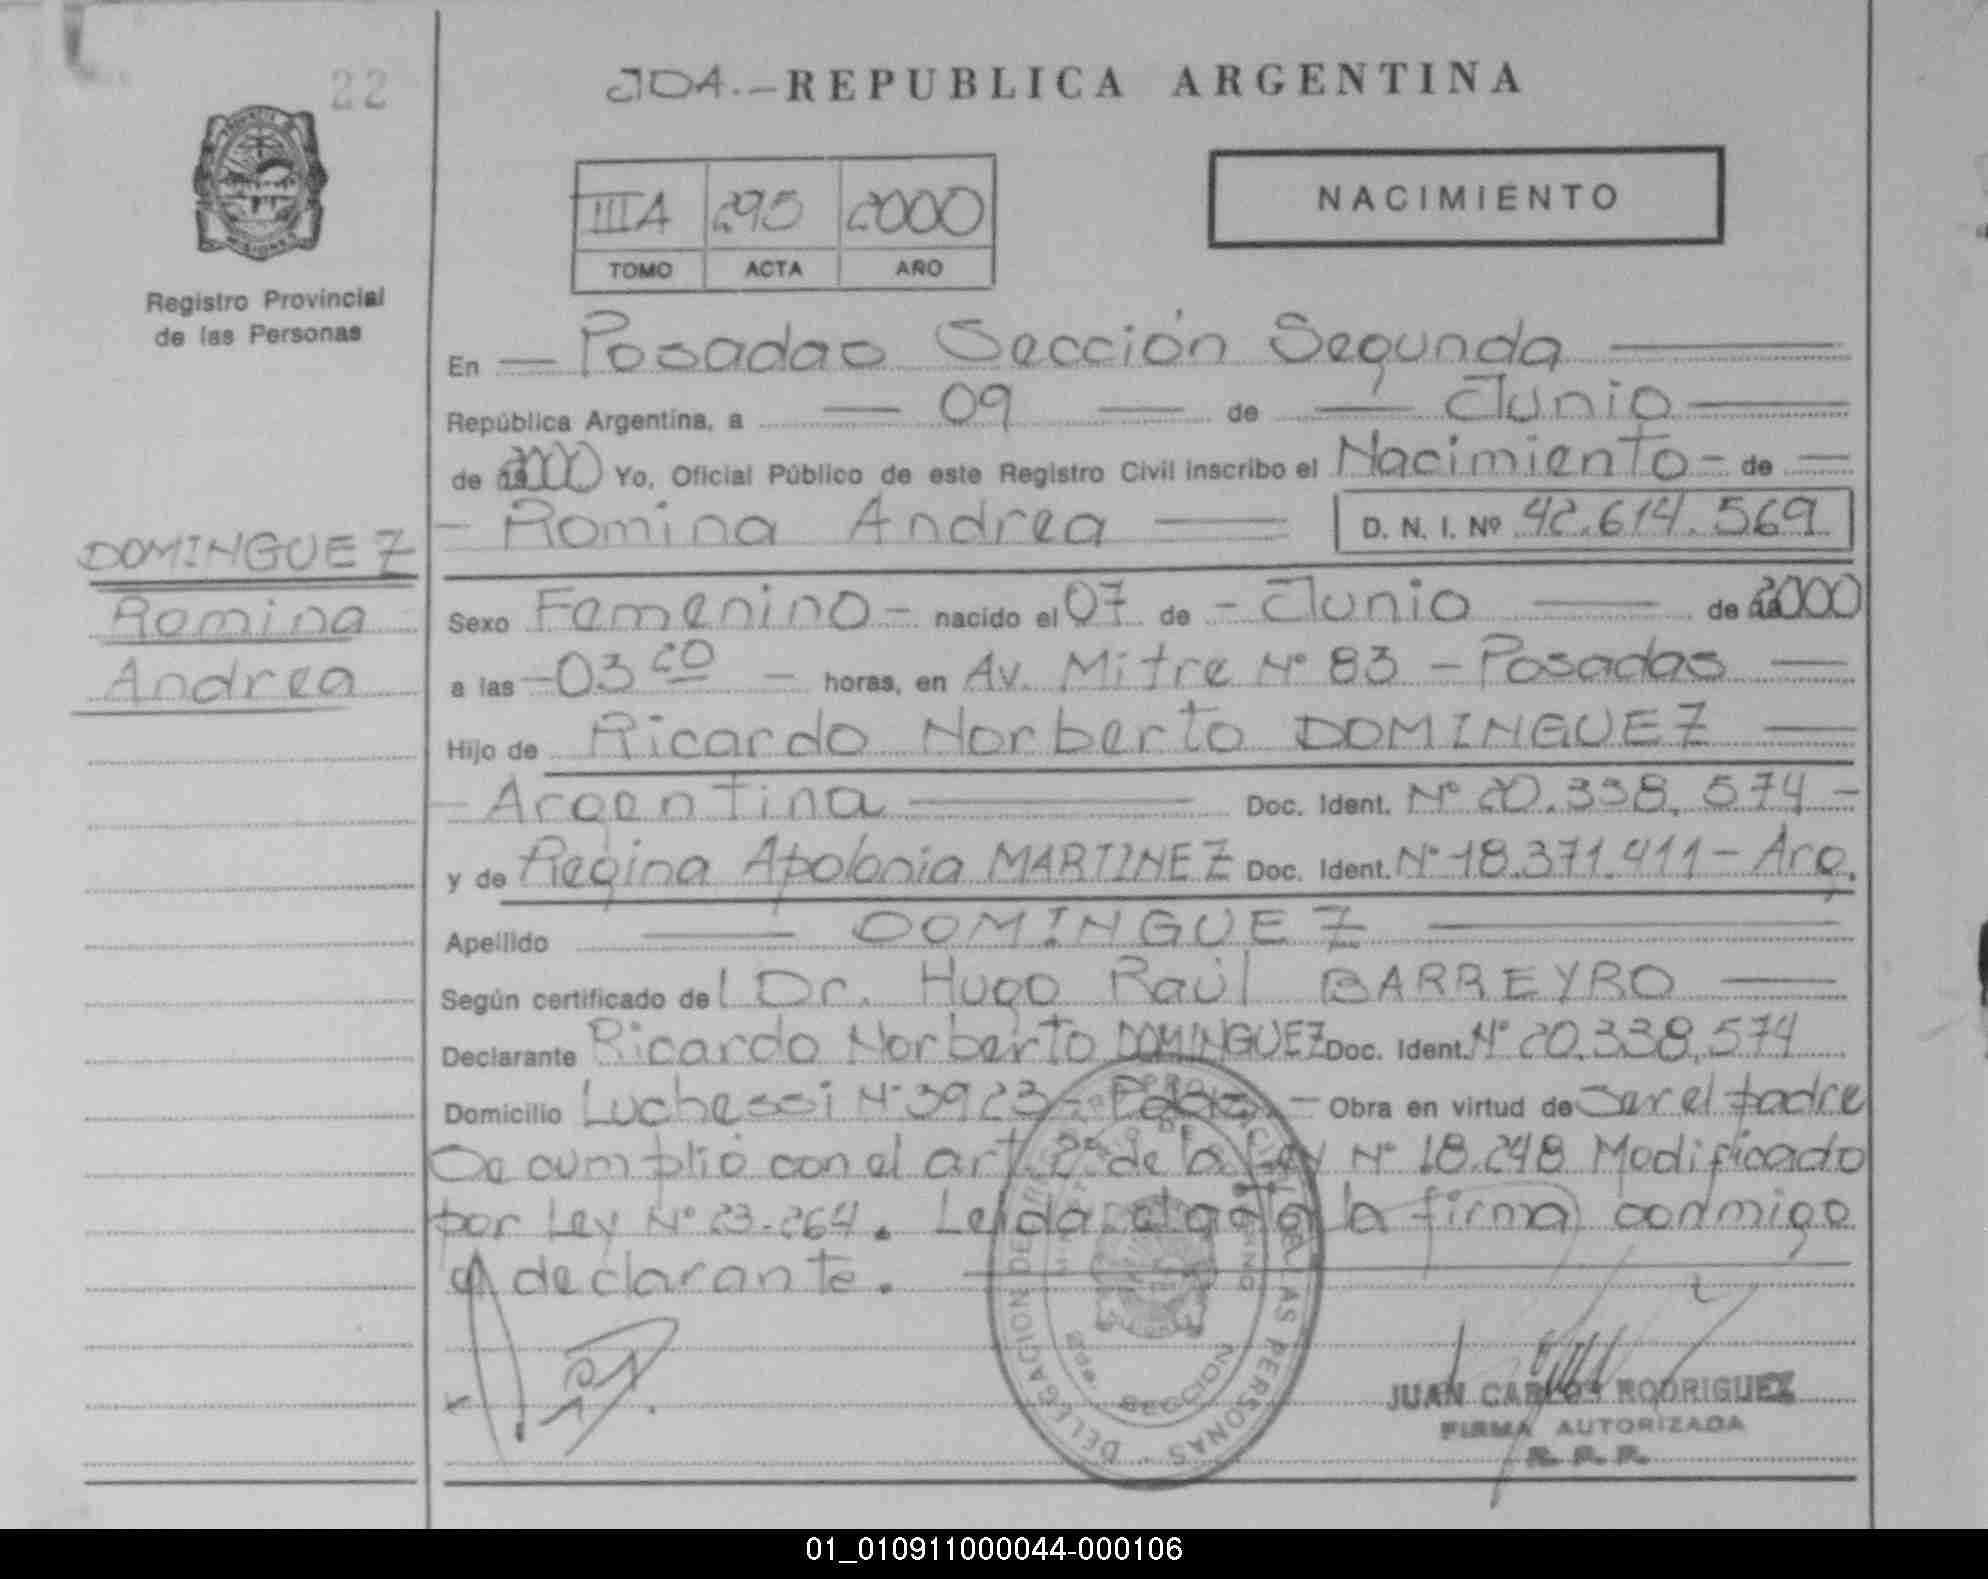 22
JDA.- REPUBLICA ARGENTINA
NACIMIENTO
IIIA 295 2000
TOMO ACTA AÑO
PROVINCIA DE MISIONES
Registro Provincial
de las Personas
En — Posadas Sección Segunda —
República Argentina, a — 09 — de — Junio —
de 2000 Yo, Oficial Público de este Registro Civil inscribo el Nacimiento - de —
— Romina Andrea — D. N. I. Nº 42.614.569
DOMINGUEZ
Romina
Andrea
Sexo Femenino - nacido el 07 de - Junio — de 2000
a las - 03 20 - horas, en Av. Mitre Nº 83 - Posadas —
Hijo de Ricardo Norberto DOMINGUEZ —
- Argentina — Doc. Ident. Nº 20.338.574 -
y de Regina Apolonia MARTINEZ Doc. Ident. Nº 18.371.411 - Arg.
Apellido — DOMINGUEZ —
Según certificado del Dr. Hugo Raúl BARREYRO —
Declarante Ricardo Norberto DOMINGUEZ Doc. Ident. Nº 20.338.574
Domicilio Luchessi Nº 3923 - - Obra en virtud de Ser el padre
Se cumplió con el art. 2º de la Ley Nº 18.248 Modificado
por Ley Nº 23.264. Leida el acta la firma conmigo
el declarante.
DELEGACION DE LAS PERSONAS
SECCION
JUAN CARLOS RODRIGUEZ
FIRMA AUTORIZADA
R. P. P.
01_010911000044-000106